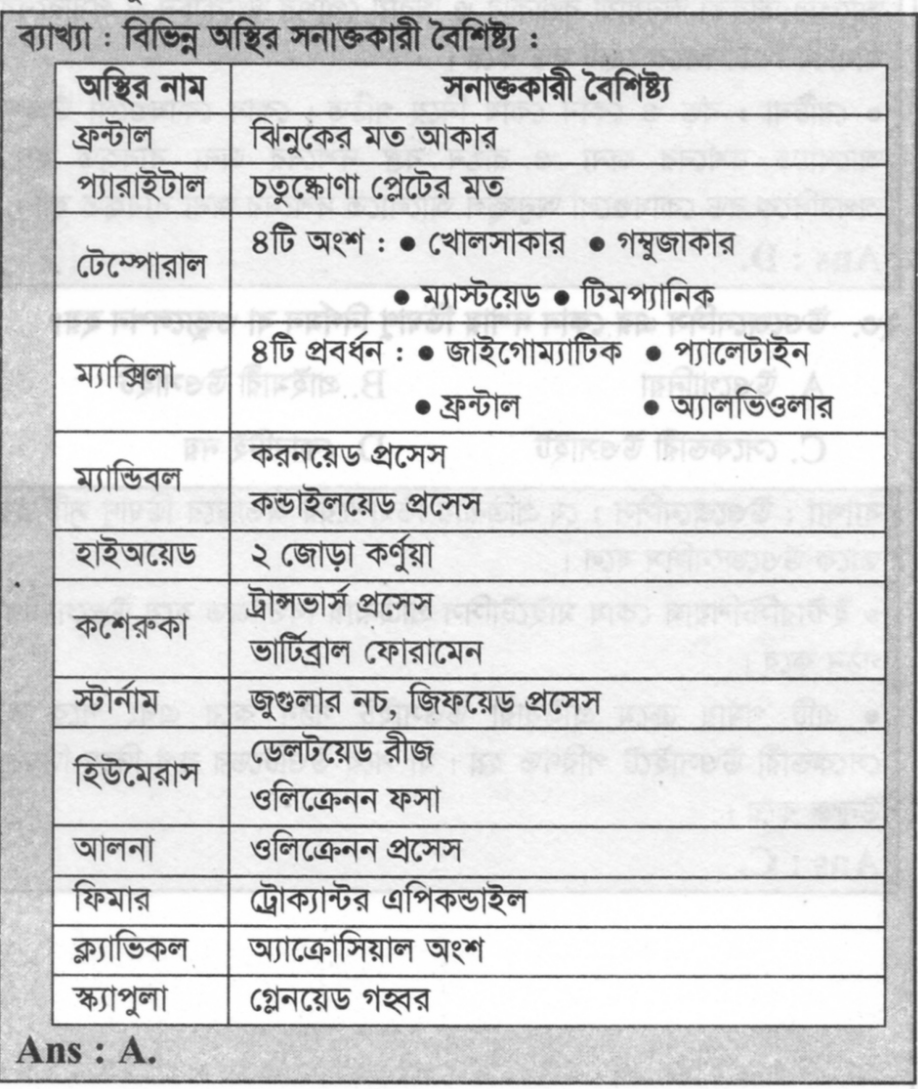 ব্যাখ্যা : বিভিন্ন অস্থির সনাক্তকারী বৈশিষ্ট্য :
অস্থির নাম সনাক্তকারী বৈশিষ্ট্য
ফ্রন্টাল ঝিনুকের মত আকার
প্যারাইটাল চতুষ্কোণা প্লেটের মত
টেম্পোরাল ৪টি অংশ : ● খোলসাকার ● গম্বুজাকার
● ম্যাস্টয়েড ● টিমপ্যানিক
ম্যাক্সিলা ৪টি প্রবর্ধন : ● জাইগোম্যাটিক ● প্যালেটাইন
● ফ্রন্টাল ● অ্যালভিওলার
ম্যান্ডিবল করনয়েড প্রসেস
কন্ডাইলয়েড প্রসেস
হাইঅয়েড ২ জোড়া কর্ণুয়া
কশেরুকা ট্রান্সভার্স প্রসেস
ভার্টিব্রাল ফোরামেন
স্টার্নাম জুগুলার নচ, জিফয়েড প্রসেস
হিউমেরাস ডেলটয়েড রীজ
ওলিক্রেনন ফসা
আলনা ওলিক্রেনন প্রসেস
ফিমার ট্রোক্যান্টর এপিকন্ডাইল
ক্ল্যাভিকল অ্যাক্রোসিয়াল অংশ
স্ক্যাপুলা গ্লেনয়েড গহ্বর
Ans : A.